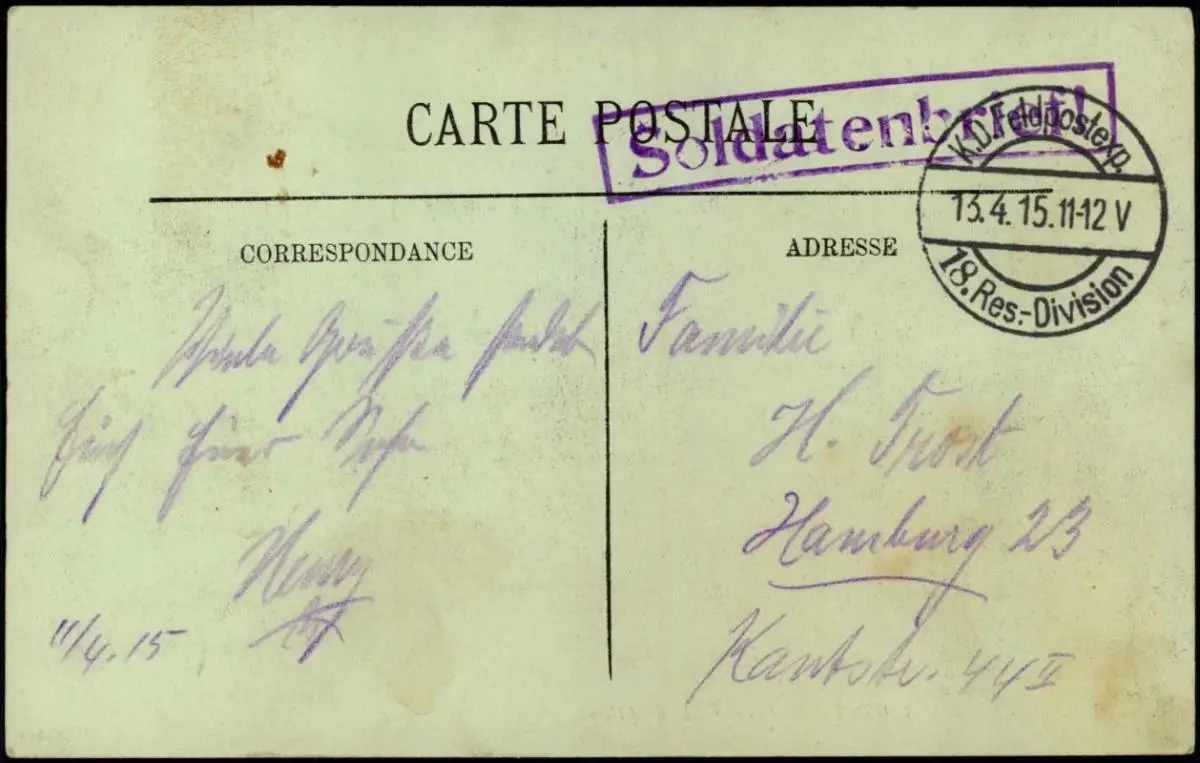 CARTE POSTALE
Soldatenbrief!
K.D. Feldpostexp.
13.4.15.11-12 V
18. Res.-Division
CORRESPONDANCE
ADRESSE
Viele Grüße sendet
Euch Euer Sohn
Henry
11/4.15
Familie
H. Trost
Hamburg 23
Kantstr. 44 II